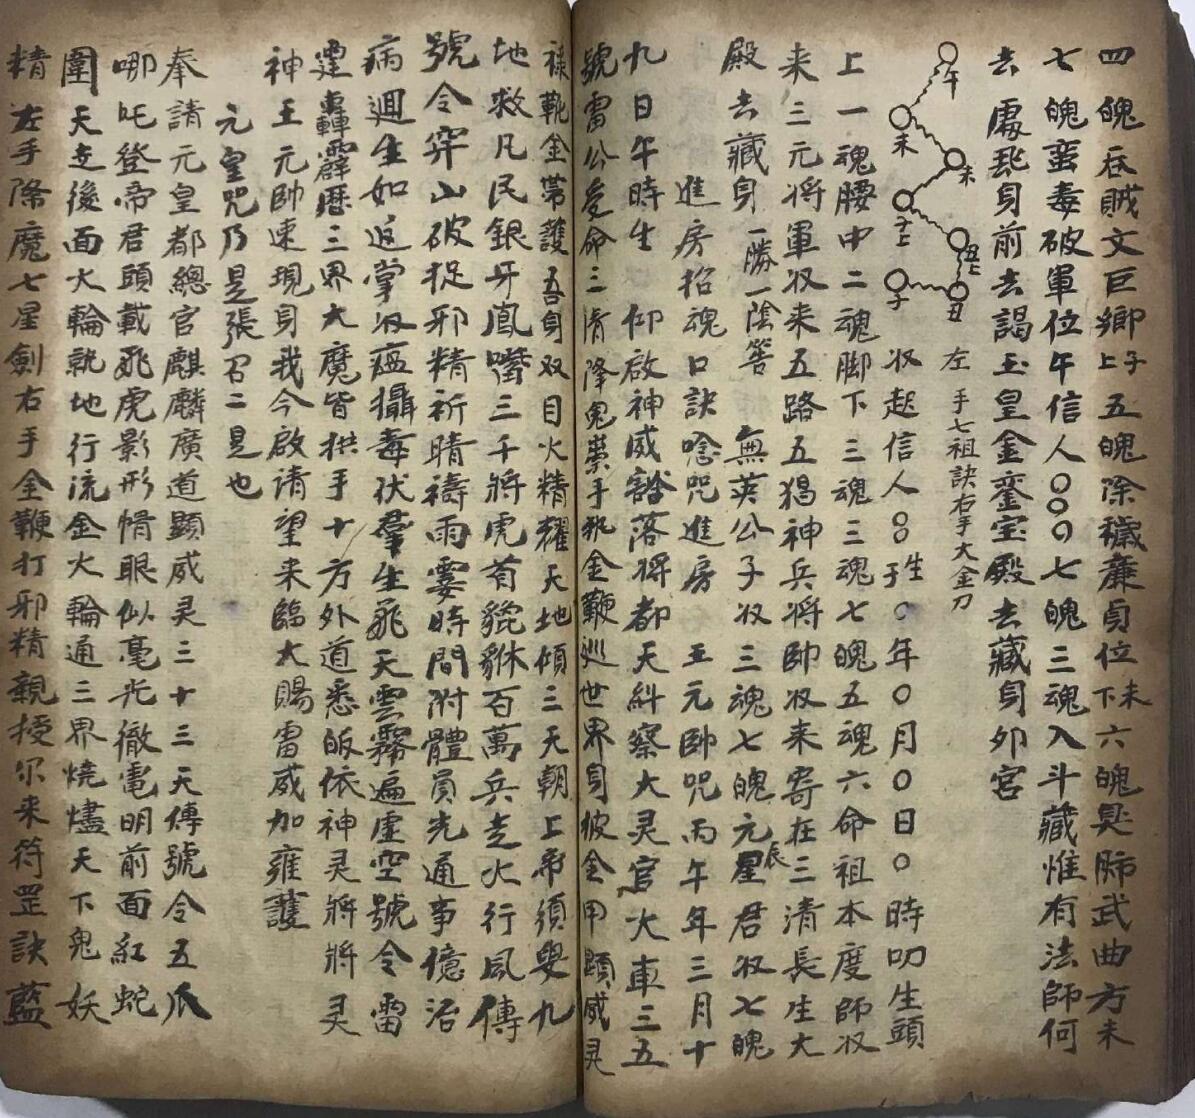 四魄吞賊文巨鄉上子五魄除穢廉貞位下未六魄臭肺武曲方未
七魄蛮毒破軍位午信人〇〇〇七魄三魂入斗藏惟有法師何
去處我身前去謁玉皇金鑾宝殿去藏身卯宮
午
未
未
子上
丑上
丑
子
左手七祖訣右手大金刀
收起信人〇〇生于〇年〇月〇日〇時叩生頭
上一魂腰中二魂脚下三魂三魂七魄五魂六命祖本度師収
来三元将軍収来五路五猖神兵将帥収来寄在三清長生大
殿去藏身一勝一陰筶無英公子収三魂七魄元辰星君収七魄
進房招魂口訣唸咒進房王元帥咒丙午年三月十
九日午時生仰啟神威豁落将都天糾察大灵官火車三五
號雷公受命三清降鬼祟手執金鞭巡世界身披金甲顕威灵
禄靴金带護吾身双目火精耀天地傾三天朝上帝須臾九
地救凡民銀牙鳳嘴三千將虎首貔貅百萬兵走火行風傳
號令穿山破捉邪精祈晴禱雨霎時間附體員光通事億治
病迴生如返掌収瘟攝毒伏羣生飛天雲霧遍虚空號令雷
霆轟霹曆三界大魔皆拱手十方外道悉皈依神灵將將灵
神王元帥速現身我今啟請望来臨大賜雷威加雍護
元皇咒乃是張召二是也
奉請元皇都總官麒麟廣道顕威灵三十三天傳號令五爪
哪吒登帝君頭戴飛虎影形㥠眼似毫光徹電明前面紅蛇
圍天走後面火輪就地行流金火輪通三界燒爐天下鬼妖
精左手降魔七星劍右手金鞭打邪精親授尔来符罡訣藍